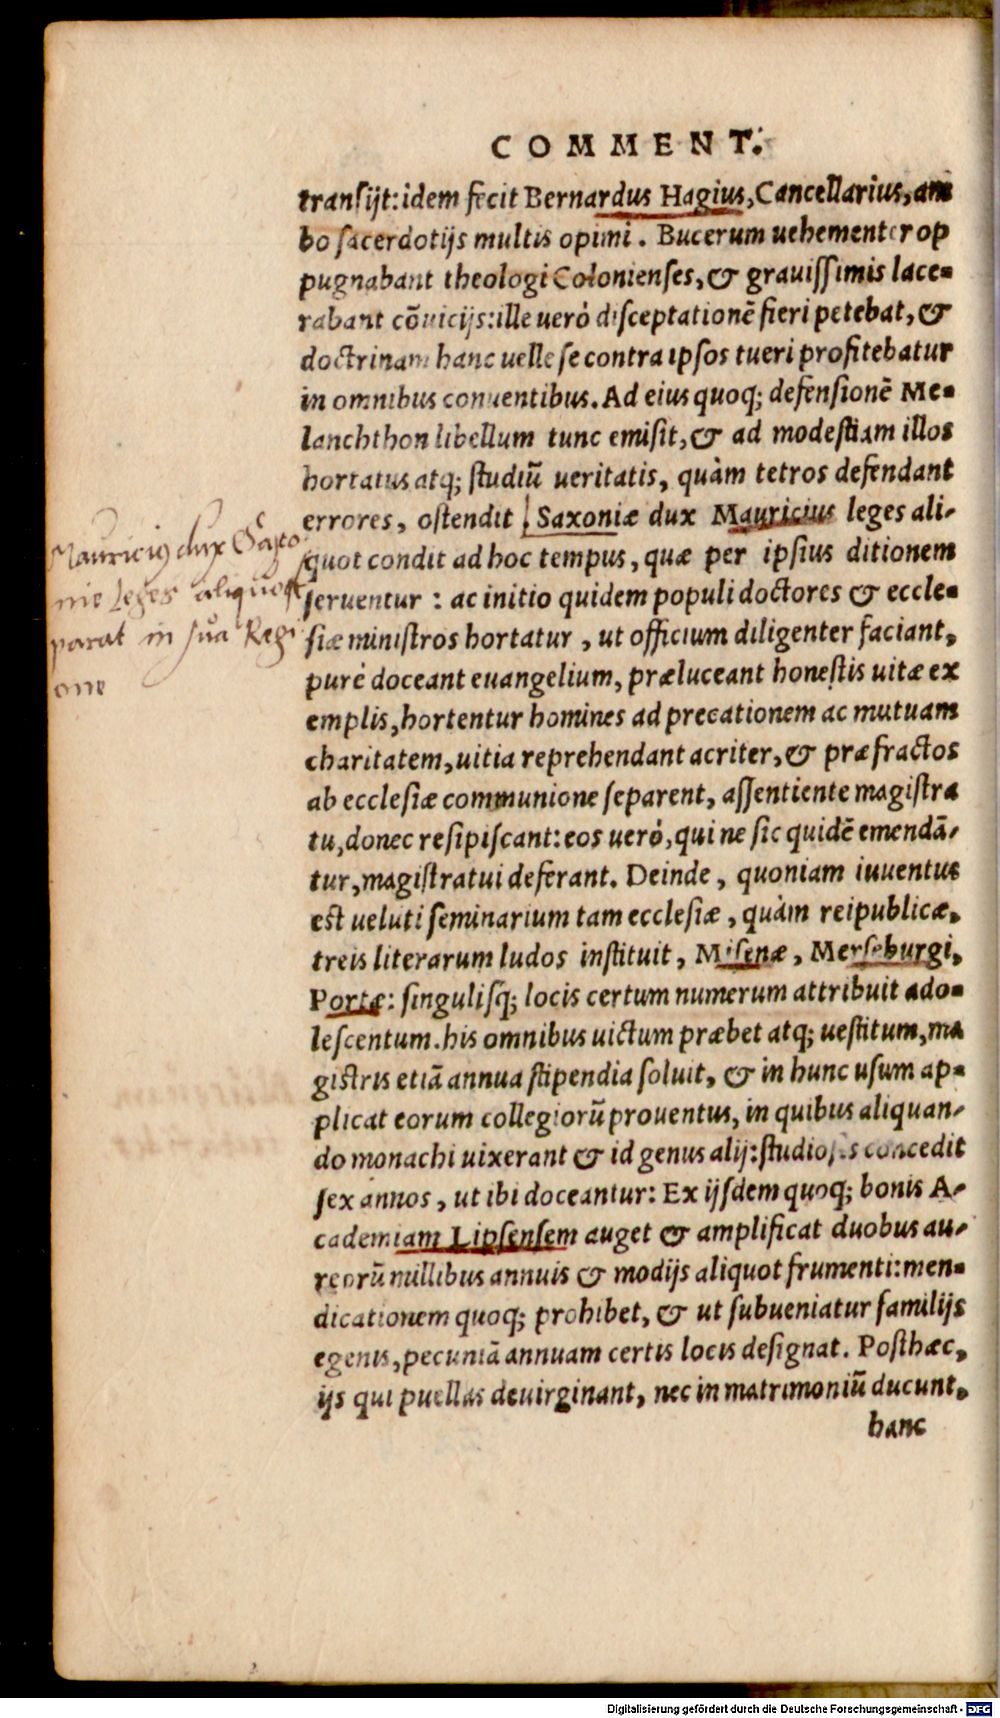 COMMENT.
transijt: idem fecit Bernardus Hagius, Cancellarius, am
bo sacerdotijs multis opimi. Bucerum uehementer op
pugnabant theologi Colonienses, & grauissimis lace-
rabant cōuicijs: ille uerò disceptationē fieri petebat, &
doctrinam hanc uelle se contra ipsos tueri profitebatur
in omnibus conuentibus. Ad eius quoq; defensionē Me-
lanchthon libellum tunc emisit, & ad modestiam illos
hortatus atq; studiū ueritatis, quàm tetros defendant
errores, ostendit. Saxoniæ dux Mauricius leges ali-
quot condit ad hoc tempus, quæ per ipsius ditionem
seruentur: ac initio quidem populi doctores & eccle-
siæ ministros hortatur, ut officium diligenter faciant,
purè doceant euangelium, præluceant honestis uitæ ex
emplis, hortentur homines ad precationem ac mutuam
charitatem, uitia reprehendant acriter, & præfractos
ab ecclesiæ communione separent, assentiente magistra
tu, donec resipiscant: eos uerò, qui ne sic quidē emendā-
tur, magistratui deferant. Deinde, quoniam iuuentus
est ueluti seminarium tam ecclesiæ, quàm reipublicæ,
treis literarum ludos instituit, Misenæ, Merseburgi,
Portæ: singulisq; locis certum numerum attribuit ado-
lescentum. his omnibus uictum præbet atq; uestitum, ma
gistris etiā annua stipendia soluit, & in hunc usum ap-
plicat eorum collegiorū prouentus, in quibus aliquan-
do monachi uixerant & id genus alij: studiosis concedit
sex annos, ut ibi doceantur: Ex ijsdem quoq; bonis A-
cademiam Lipsensem auget & amplificat duobus au-
reorū millibus annuis & modijs aliquot frumenti: men-
dicationem quoq; prohibet, & ut subueniatur familijs
egenis, pecuniā annuam certis locis designat. Posthæc,
ijs qui puellas deuirginant, nec in matrimoniū ducunt,
hanc
Mauricius dux Saxo
nie Leges aliquot
parat in sua Regi
one
Digitalisierung gefördert durch die Deutsche Forschungsgemeinschaft - DFG